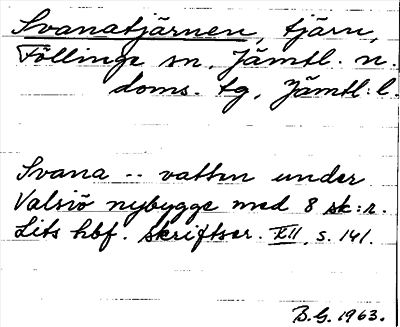 Svanatjärnen, tjärn,
Föllinge sn, Jämtl. n.
doms. tg, Jämtl: l.
Svana -- vatten under
Valsiö nybygge med 8 sk:r.
Lits hbf. skriftser. XII, s. 141.
B.G. 1963.